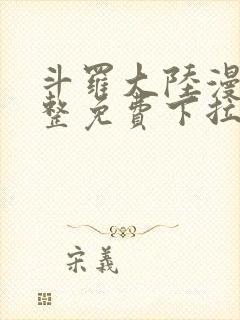 斗羅大陸漫
整免費下拉
宋義